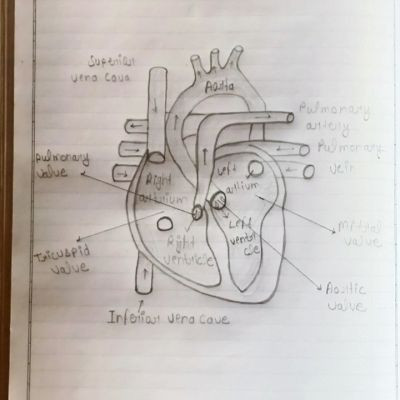 Superior
vena cava
Aorta
Pulmonary
artery
Pulmonary
vein
Pulmonary
valve
Right
artrium
Left
artrium
Left
ventric
cle
Right
ventricle
Mitral
valve
Tricuspid
valve
Aortic
valve
Inferior vena cave